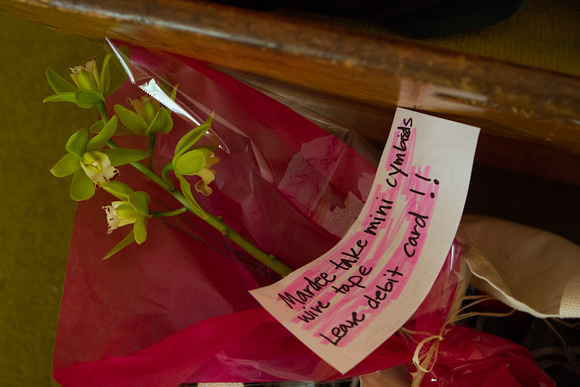 Mardee take mini cymbids
wire tape
Leave debit card !!